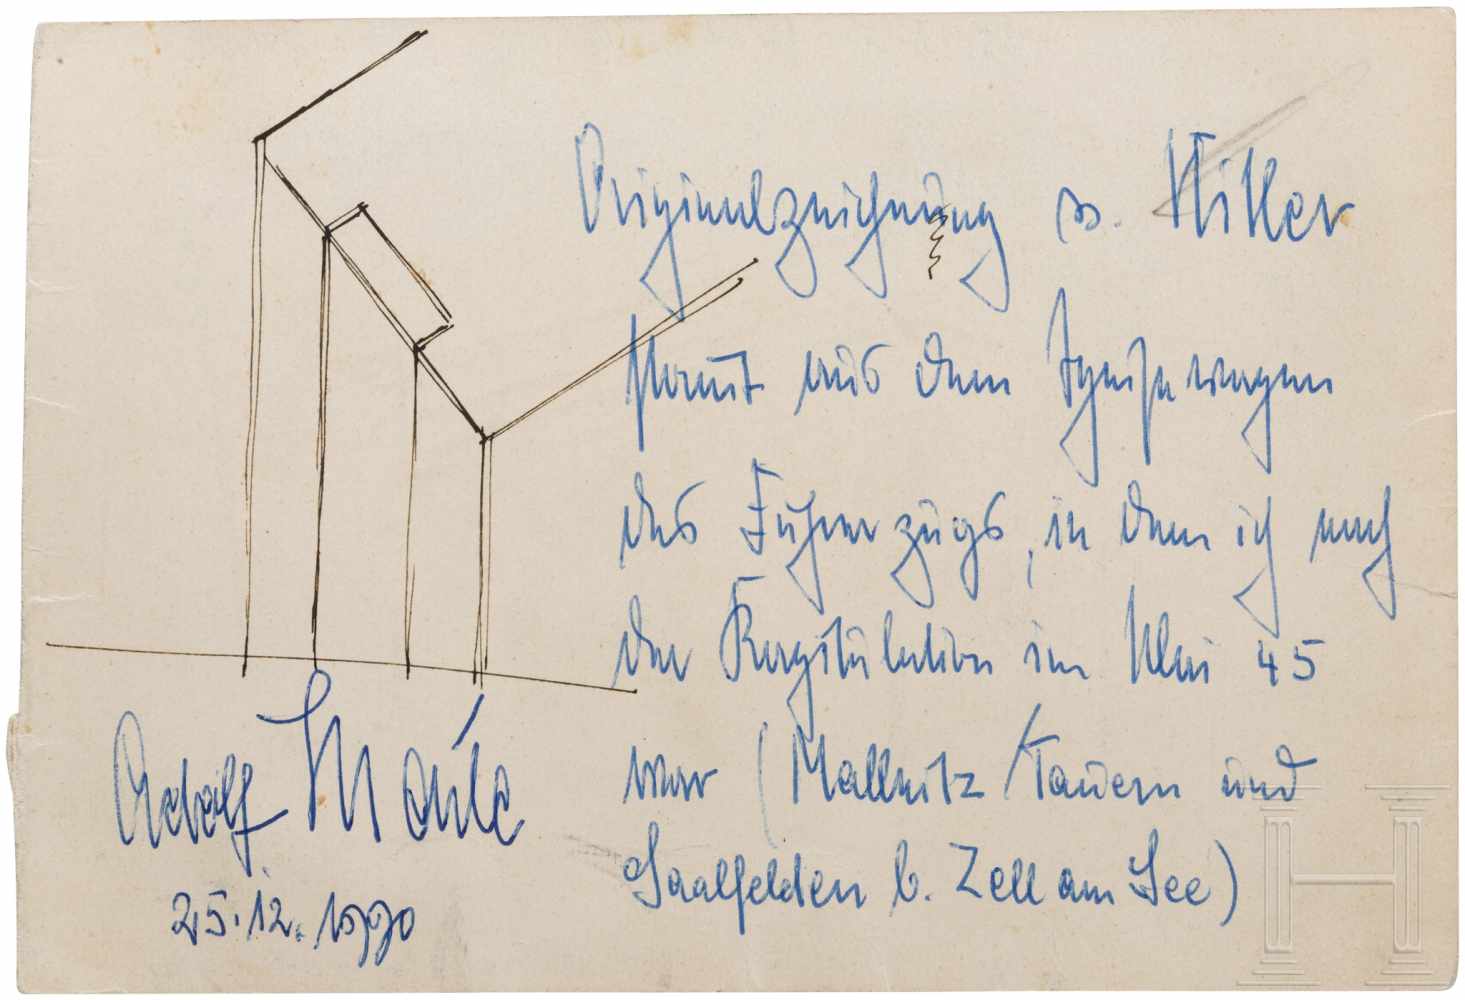 Originalzeichnung v. Hitler
stammt aus dem Speisewagen
des Führerzugs, in dem ich nach
der Kapitulation im Mai 45
war (Mallnitz/Tauern und
Saalfelden b. Zell am See)
Adolf
25.12.1990
H